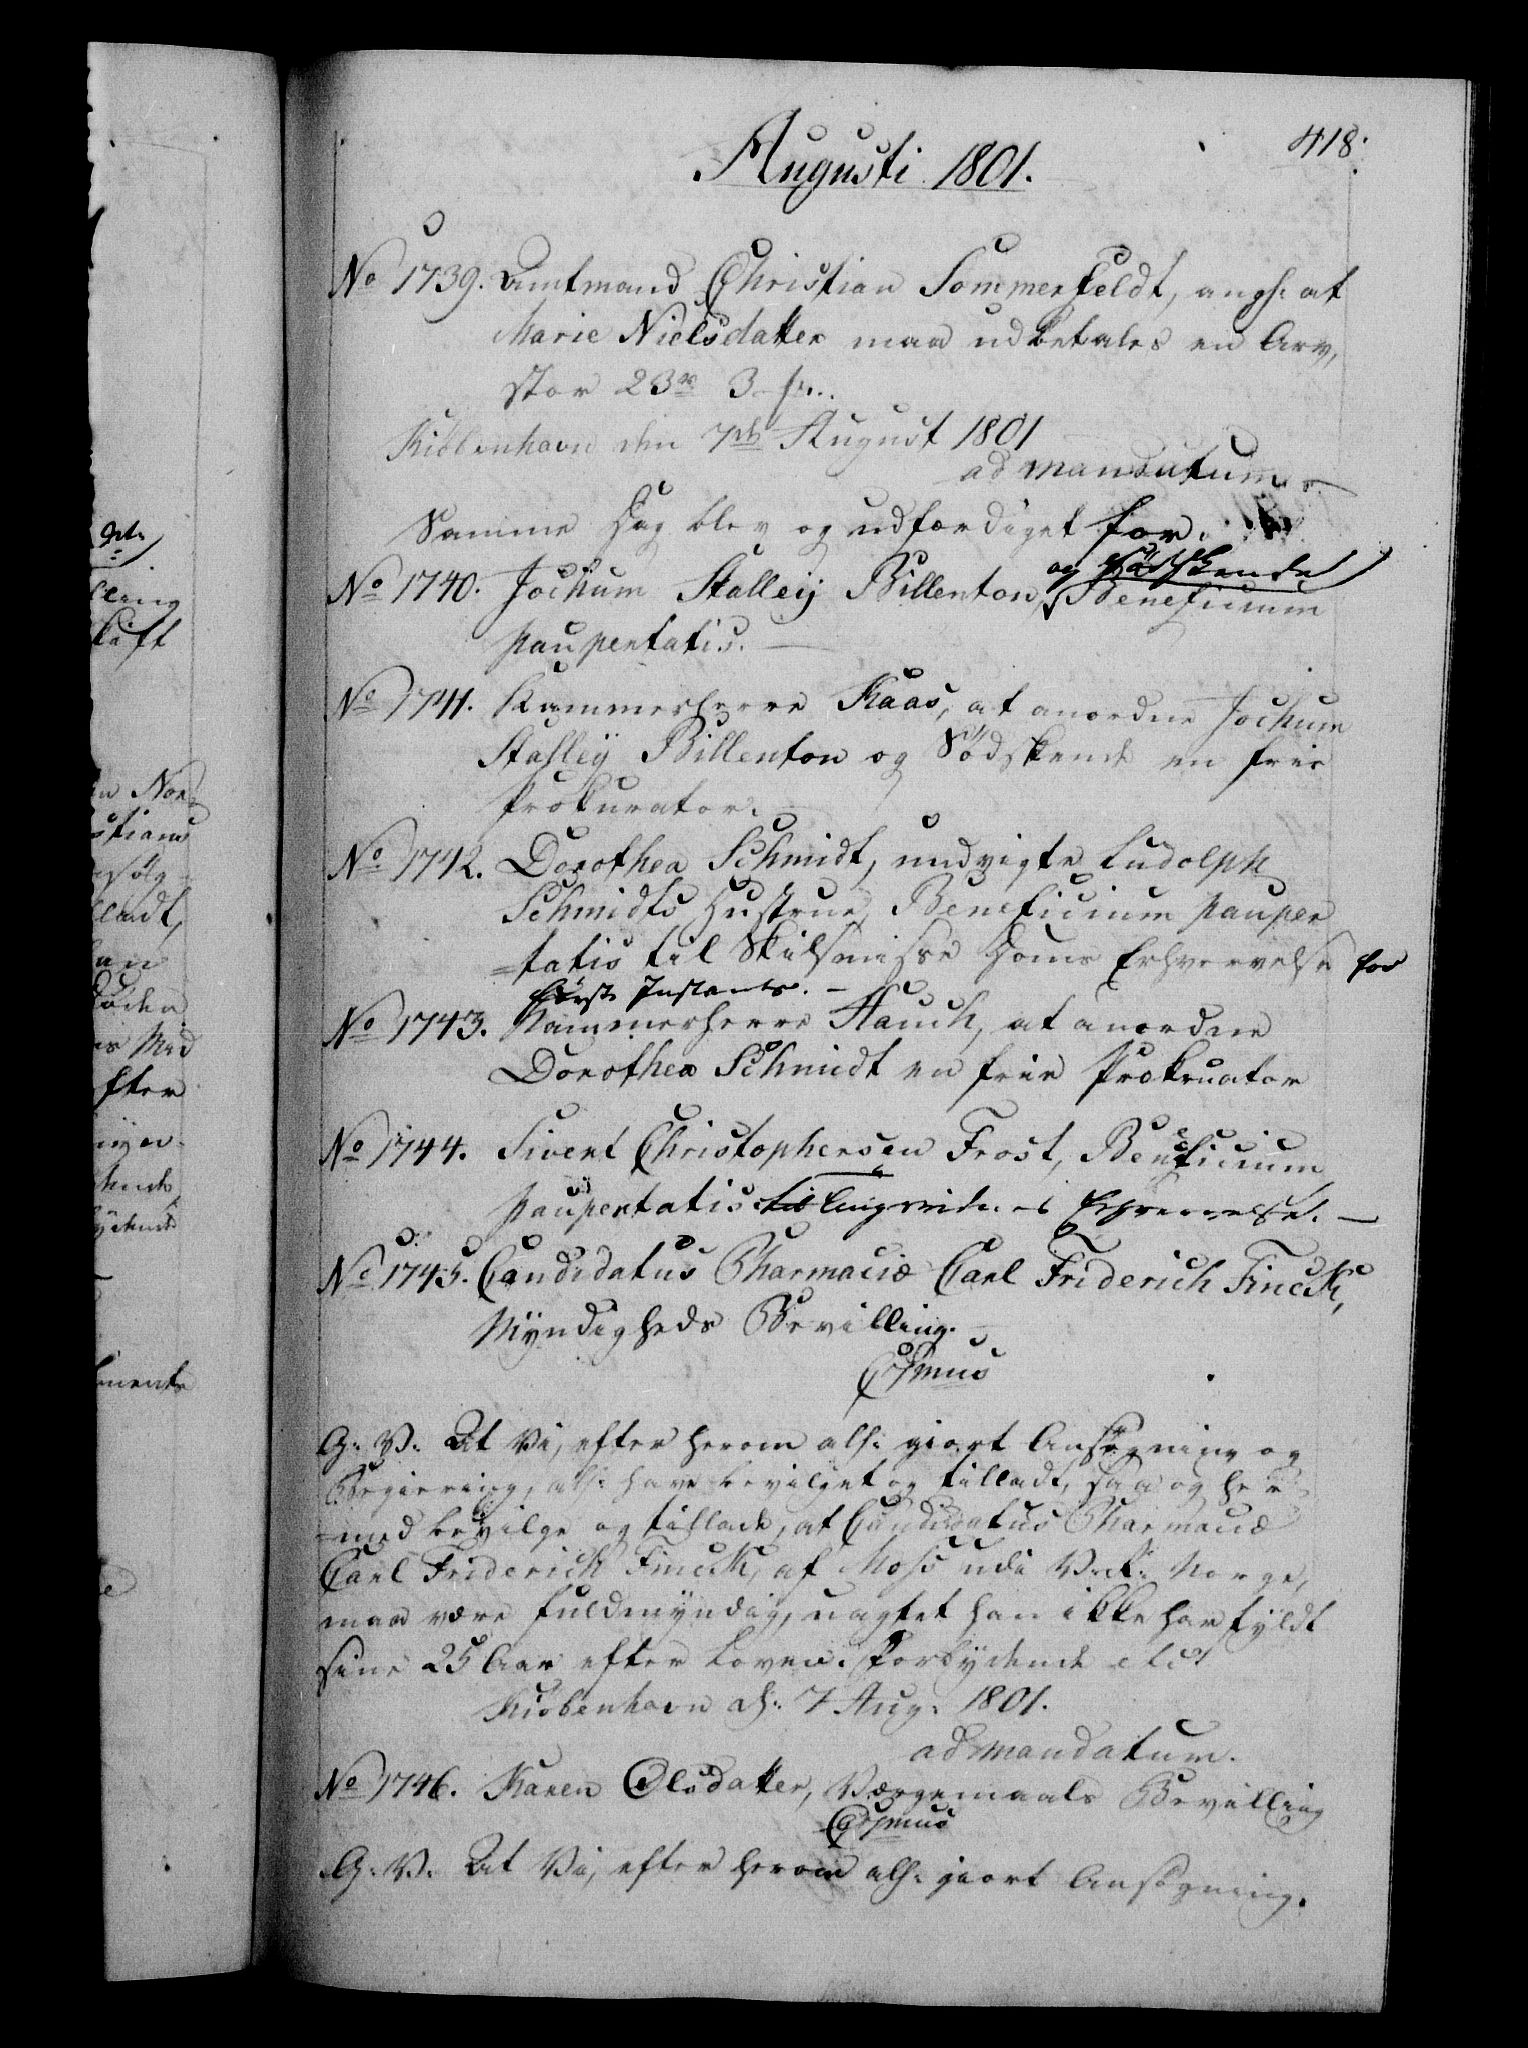 418.
Augusti 1801.
No 1739. Amtmand Christian Sommerfeldt, angl: at
Marie Nielsdatter maa udbetales en Arv,
stor 23 rd 3 ..
Kiöbenhavn den 7de August 1801
ad mandatum
Samme Dag blev og udfærdiget for.
og Södskende
No 1740. Jochum Stalleÿ Billenton, Beneficium
paupertatis.
No 1741. Kammerherre Kaas, at anordne Jochum
Stalleÿ Billenton og Södskende en frie
Prokurator.
No 1742. Dorothea Schmidt, undvigte Ludolph
Schmidts Hustrue, Beneficium pauper
=tatis til Skilsmisse Doms Erhvervelse for
Förste Instants. —
No 1743. Kammerherre Hauch, at anordne
Dorothea Schmidt en frie Prokruator
No 1744. Sivert Christophersen Frost, Beneficium
paupertatis til Tingvidnes Erhvervelse. —
No 1745. Candidatus Pharmaciæ Carl Friderich Finck,
Mÿndigheds Bevilling.
G: V: At Vi, efter herom all: giort Ansøgning og
Begiering, all: have bevilget og tilladt, saa og her
=med bevilge og tillade, at Candidatus Pharmaciæ
Carl Friderich Finck, af Moss udi V: R: Norge,
maa være fuldmÿndig, uagtet han ikke har fÿldt
sine 25 Aar efter Loven. Forbÿdende etc.
Kiöbenhavn d: 7 Aug: 1801.
ad mandatum.
No 1746. Karen Olsdatter, Værgemaals Bevilling
G: V: At Vi, efter herom all: giort Ansögning.